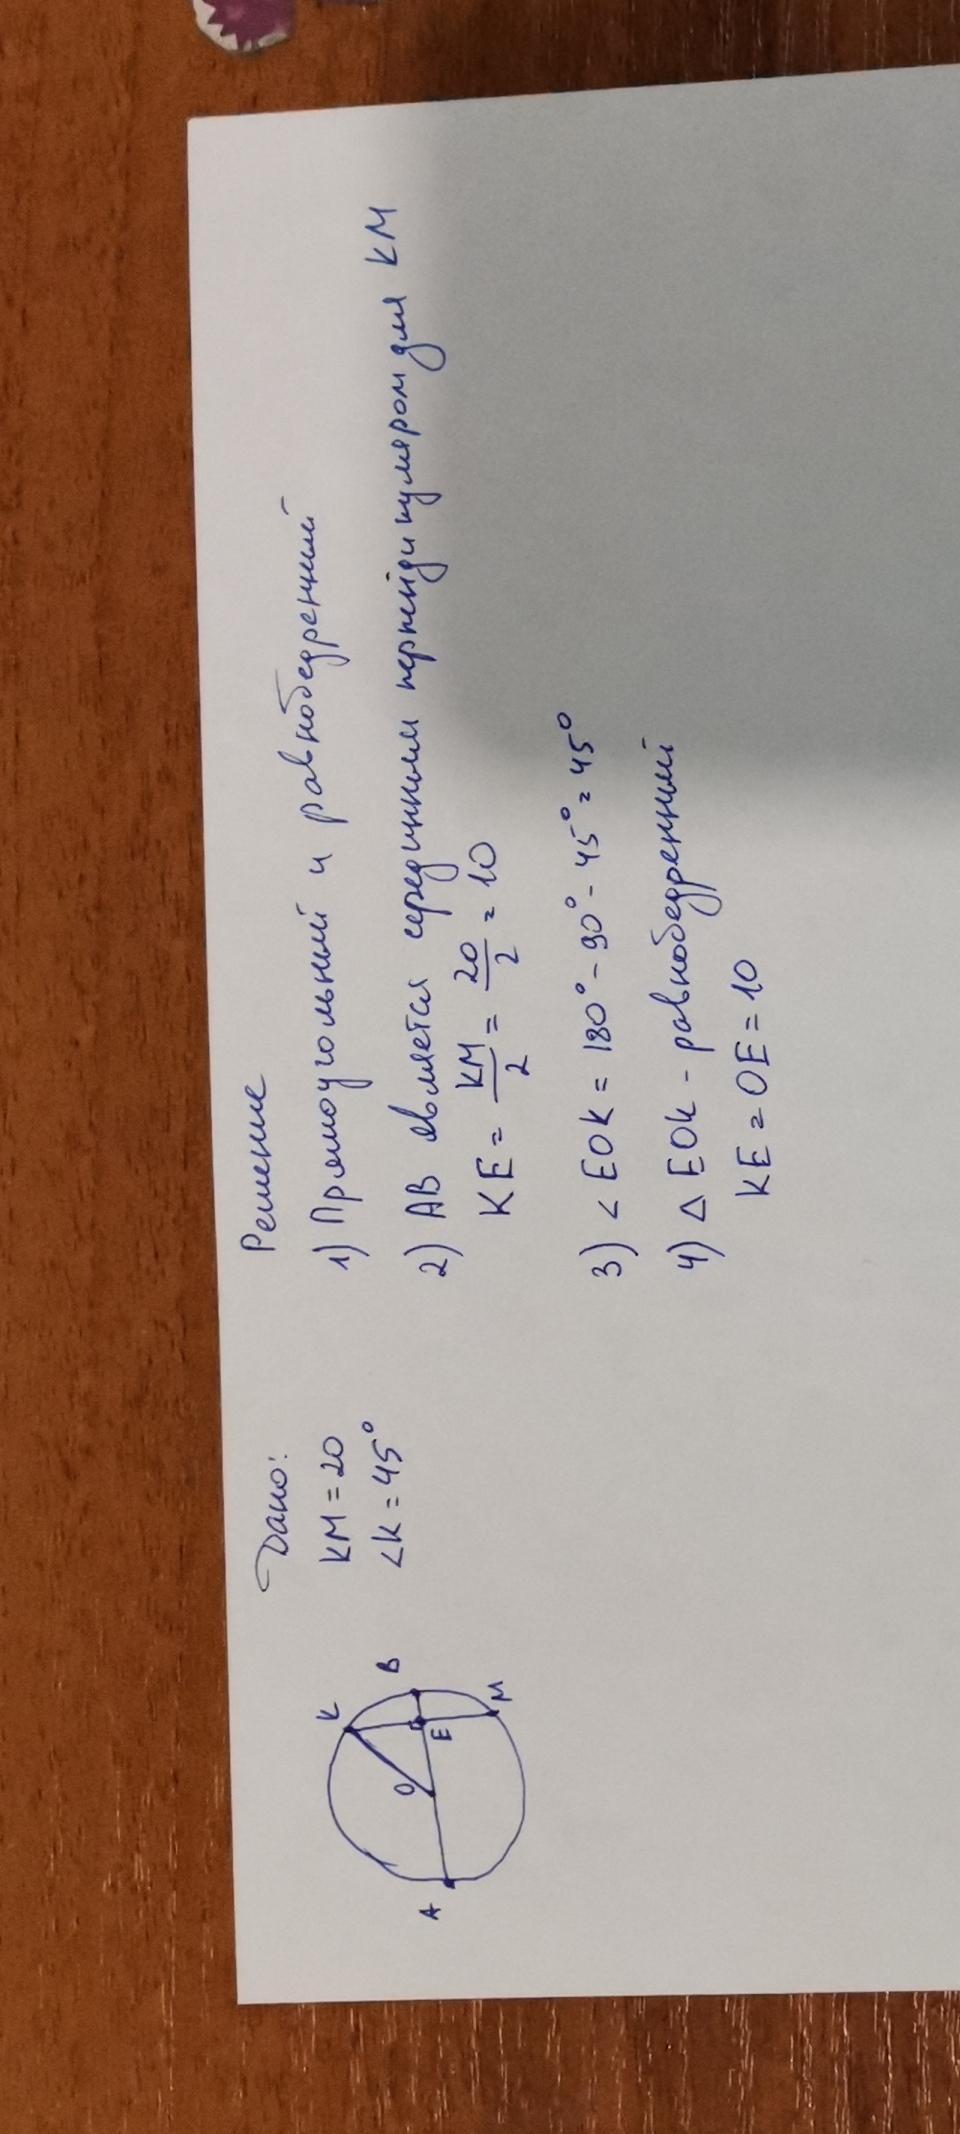 Дано:
KM = 20
<K = 45°
K
B
O
E
A
M
Решение
1) Прямоугольный и равнобедренный
2) AB является серединным перпендикуляром для KM
KE = KM/2 = 20/2 = 10
3) < EOK = 180° - 90° - 45° = 45°
4) Δ EOK - равнобедренный
KE = OE = 10